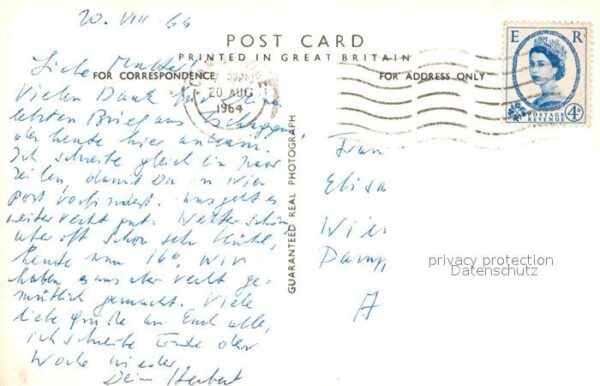 20. VIII. 64
POST CARD
PRINTED IN GREAT BRITAIN
FOR CORRESPONDENCE
FOR ADDRESS ONLY
E R
POSTAGE
REVENUE
4D
20 AUG
1964
GUARANTEED REAL PHOTOGRAPH
Liebe Mutter
Vielen Dank für
letzten Brief aus
der heute hier ankam.
Ich schreibe gleich ein paar
Zeilen, damit Du in Wien
Post vorfindest. Uns geht es
weiter recht gut. Wetter schön
aber oft schon sehr kühl,
heute nur 16°, wir
haben es uns aber recht ge-
mütlich gemacht. Viele
liebe Grüße an Euch alle,
ich schreibe Ende der
Woche wieder
Dein Herbert
Frau
Elisa
Wien
Damp
A
privacy protection
Datenschutz